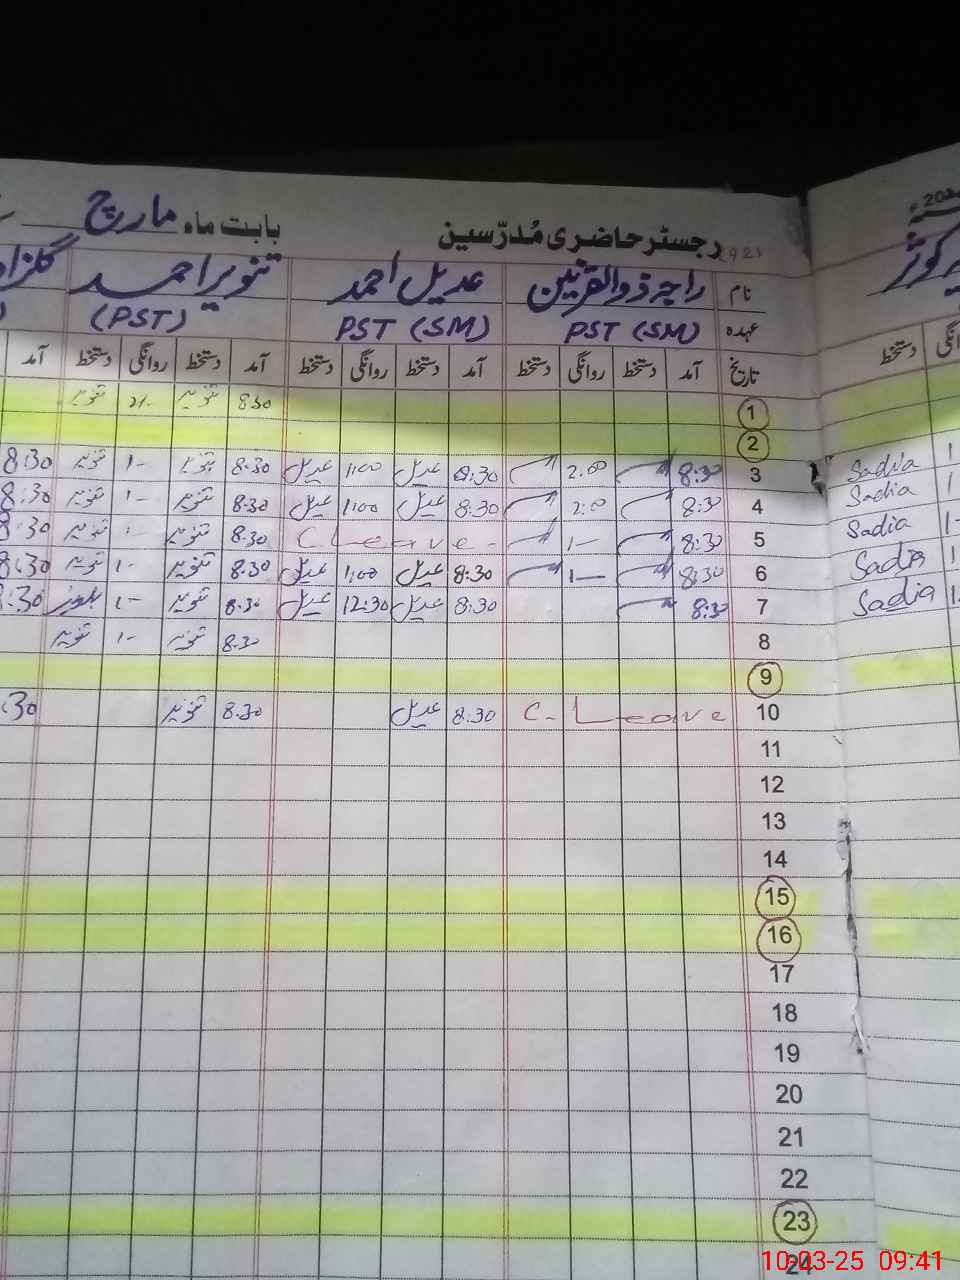 رجسٹر حاضری مُدرّسین بابت ماہ مارچ
نام راجہ ذوالقرنین عدیل احمد تنویر احمد
عہدہ PST (SM) PST (SM) (PST)
تاریخ آمد دستخط روانگی دستخط آمد دستخط روانگی دستخط آمد دستخط روانگی دستخط آمد
دستخط
1 8:30 تنویر تنویر
2
3 8:30 2:00 8:30 عدیل 1:00 عدیل 8:30 تنویر 1- تنویر 8:30
Sadia
4 8:30 2:00 8:30 عدیل 1:00 عدیل 8:30 تنویر 1- تنویر 8:30
Sadia
5 8:30 1- C Leave- 8:30 تنویر تنویر 8:30
Sadia
6 8:30 1- 8:30 عدیل 1:00 عدیل 8:30 تنویر 1- تنویر 8:30
Sadia
7 8:30 8:30 عدیل 12:30 عدیل 8:30 تنویر 1- :30
Sadia
8 8:30 تنویر 1- تنویر
9
10 C- Leave 8:30 عدیل 8:30 تنویر :30
11
12
13
14
15
16
17
18
19
20
21
22
23
24
10-03-25 09:41